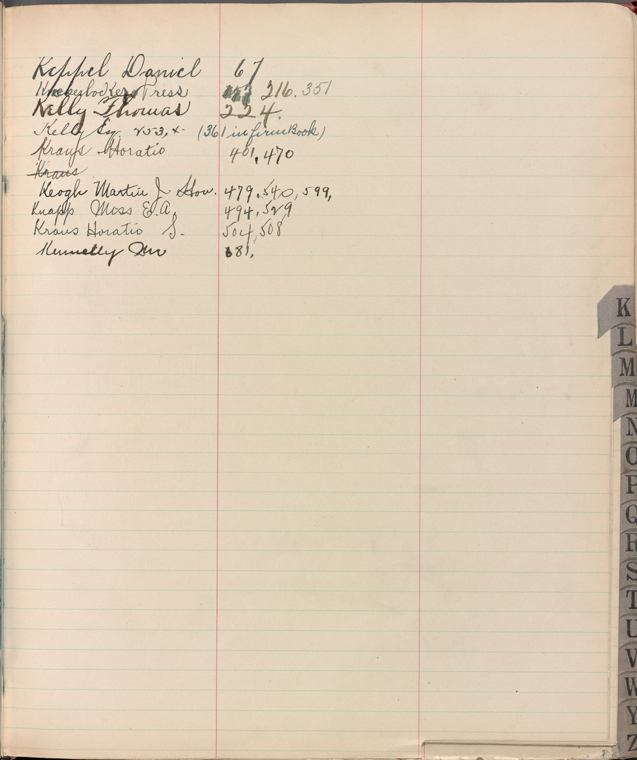 Keppel Daniel 67
Knickerbocker Press 216. 351
Kelly Thomas 224.
Kelly Esq. 253, & (361 in firm Book)
Kraus Horatio 401, 470
Kraus
Keogh Martin J. Hon. 479, 540, 599,
Knapp Moss E.A. 494, 529
Kraus Horatio S. 504, 508
Kennelly Wm 681,
K
L
M
M
N
O
P
Q
R
S
T
U
V
W
Y
Z